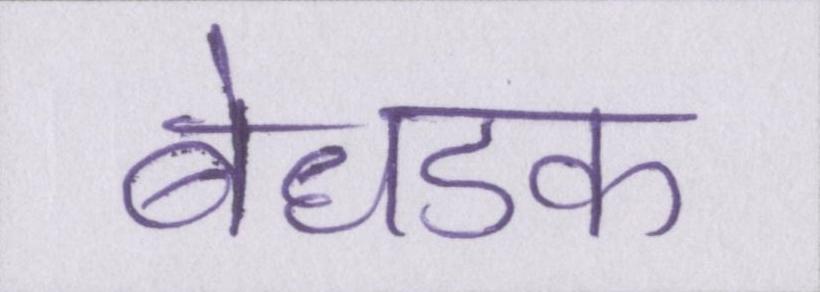 बेधडक